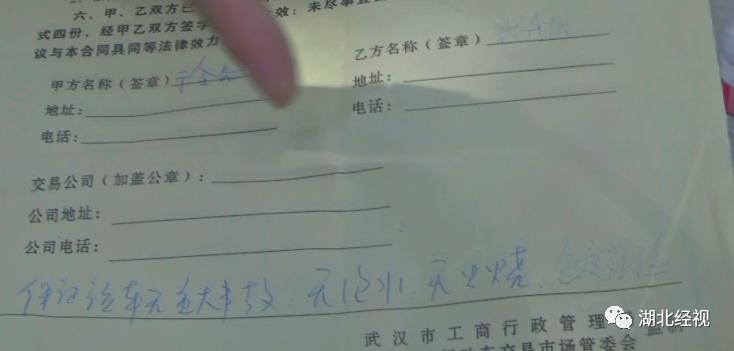 六、甲、乙双方已 效：未尽事宜
式四份，经甲乙双方签字
议与本合同具同等法律效力
甲方名称（签章）
乙方名称（签章）
地址：
地址：
电话：
电话：
交易公司（加盖公章）：
公司地址：
公司电话：
保证该车无重大事故、无泡水、无火烧、
武汉市工商行政管理 监制
动车交易市场管委会
湖北经视